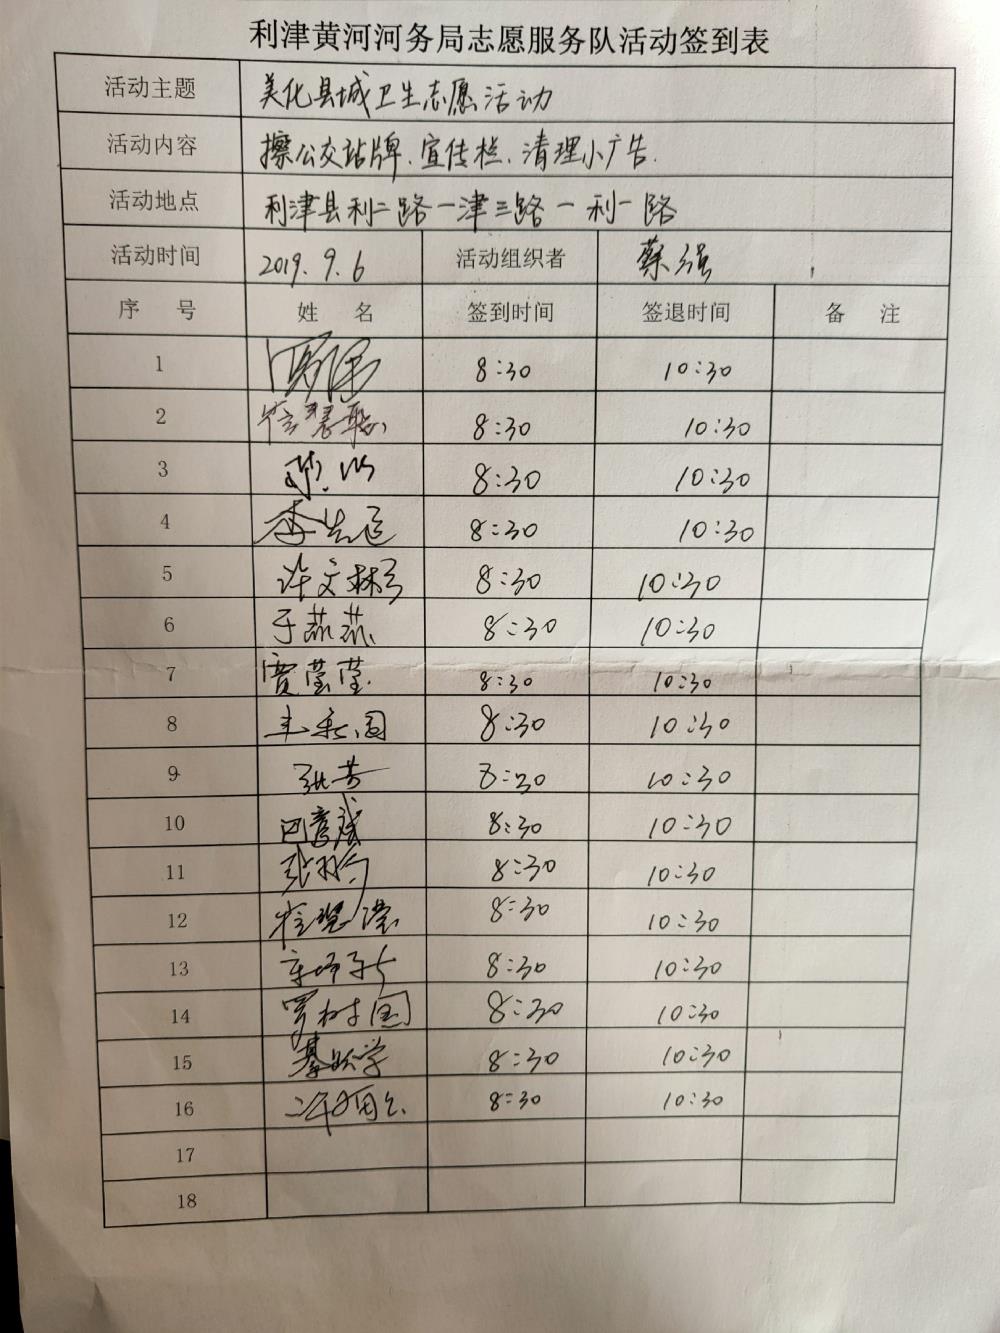 利津黄河河务局志愿服务队活动签到表
活动主题 美化县城卫生志愿活动
活动内容 擦公交站牌、宣传栏、清理小广告.
活动地点 利津县利二路一津三路一利一路
活动时间 2019.9.6 活动组织者 蔡强
序 号 姓 名 签到时间 签退时间 备 注
1 8:30 10:30
2 崔慧聪 8:30 10:30
3 8:30 10:30
4 李 8:30 10:30
5 许文彬 8:30 10:30
6 于燕燕 8:30 10:30
7 贾莹莹 8:30 10:30
8 8:30 10:30
9 张芳 8:30 10:30
10 巴彦斌 8:30 10:30
11 张 8:30 10:30
12 崔 8:30 10:30
13 8:30 10:30
14 罗树国 8:30 10:30
15 綦 学 8:30 10:30
16 8:30 10:30
17
18